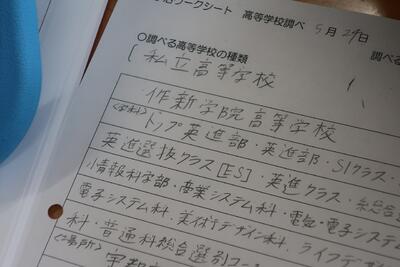 ワークシート 高等学校調べ 5月29日
○調べる高等学校の種類 調べる
( 私立高等学校 (
作新学院高等学校
<学科> トップ英進部・英進部・SIクラス・
英進選抜クラス[ES]・英進クラス・総合
情報科学部・商業システム科・電気・電子システム
電子システム科・美術デザイン科・ライフデザイ
科・普通科総合選別コ
<場所>
宇都